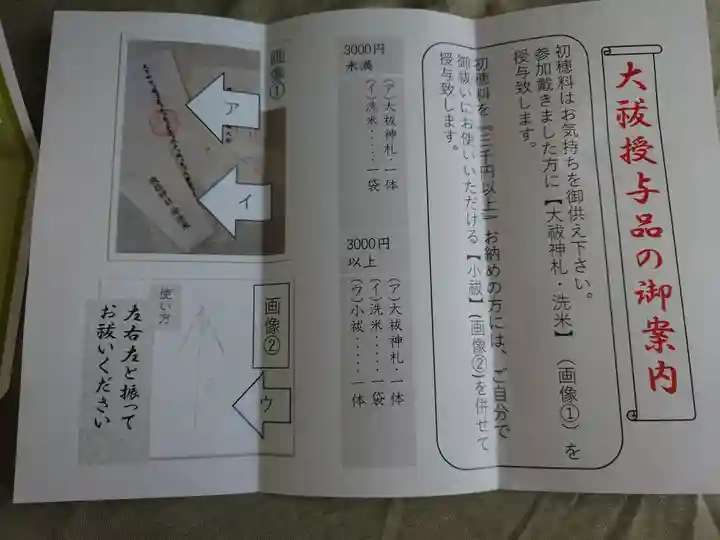 大祓授与品の御案内
初穂料はお気持ちを御供え下さい。
参加戴きました方に【大祓神札・洗米】(画像①)を
授与致します。
初穂料を『三千円以上』お納めの方には、ご自分で
御祓いにお使いいただける【小祓】(画像②)を併せて
授与致します。
3000円
未満
(ア)大祓神札・一体
(イ)洗米・・・・一袋
3000円
以上
(ア)大祓神札・一体
(イ)洗米・・・・一袋
(ウ)小祓・・・・一体
画像①
ア
イ
画像②
ウ
使い方
左右左と振って
お祓いください